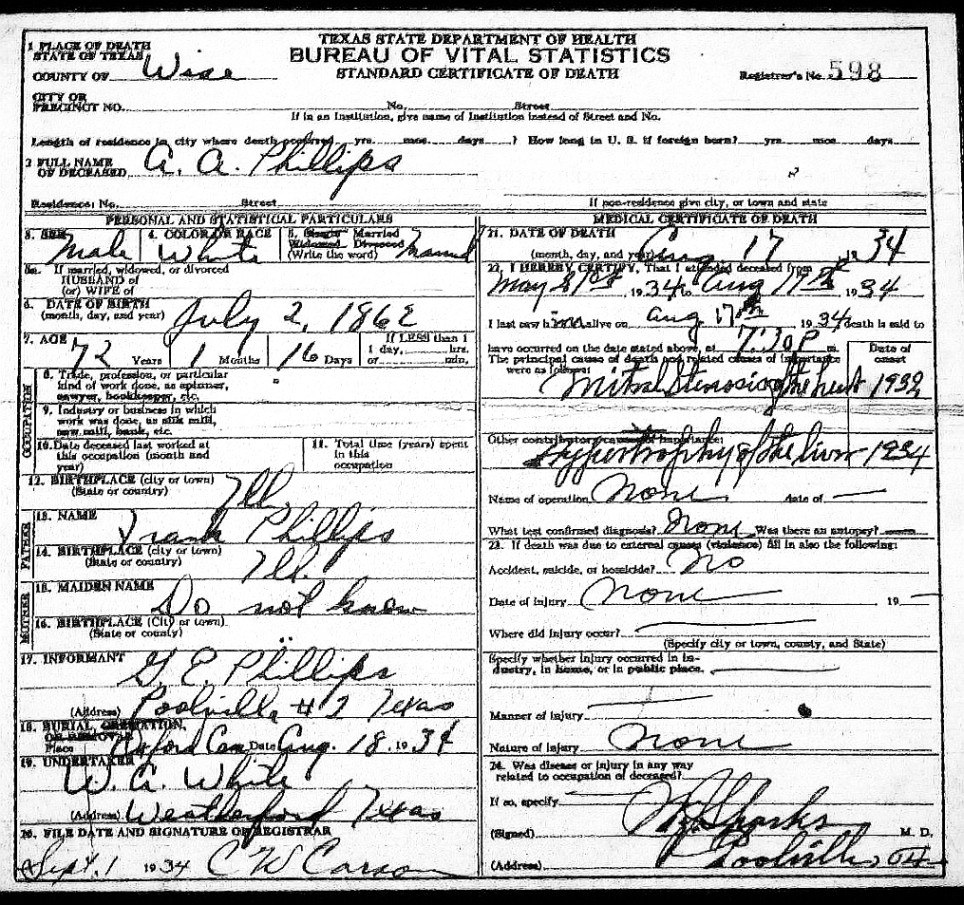 TEXAS STATE DEPARTMENT OF HEALTH
BUREAU OF VITAL STATISTICS
STANDARD CERTIFICATE OF DEATH
1 PLACE OF DEATH
STATE OF TEXAS
COUNTY OF Wise
Registrar's No. 598
CITY OR
PRECINCT NO. No. Street
If in an Institution, give name of Institution instead of Street and No.
Length of residence in city where death occurred yrs. mos. days ? How long in U. S. if foreign born? yrs. mos. days
2 FULL NAME
OF DECEASED A. A. Phillips
Residence: No. Street If non-residence give city, or town and state
PERSONAL AND STATISTICAL PARTICULARS
3. SEX Male
4. COLOR OR RACE White
5. Single Married
Widowed Divorced
(Write the word) Married
5a. If married, widowed, or divorced
HUSBAND of
(or) WIFE of
6. DATE OF BIRTH
(month, day, and year) July 2, 1862
7. AGE 72 Years 1 Months 16 Days If LESS than 1
1 day, hrs.
or min.
OCCUPATION
8. Trade, profession, or particular
kind of work done, as spinner,
sawyer, bookkeeper, etc.
9. Industry or business in which
work was done, as silk mill,
saw mill, bank, etc.
10. Date deceased last worked at
this occupation (month and
year)
11. Total time (years) spent
in this
occupation
12. BIRTHPLACE (city or town)
(State or country) Ill.
FATHER
13. NAME Frank Phillips
14. BIRTHPLACE (city or town)
(State or country) Ill.
MOTHER
15. MAIDEN NAME Do not know
16. BIRTHPLACE (City or town)
(State or county)
17. INFORMANT G. E. Phillips
(Address) Poolville # 2 Texas
18. BURIAL, CREMATION,
OR REMOVAL
Place Oxford Cem Date Aug. 18, 1934
19. UNDERTAKER W. A. White
(Address) Weatherford Texas
20. FILE DATE AND SIGNATURE OF REGISTRAR
Sept. 1 1934 C W Carson
MEDICAL CERTIFICATE OF DEATH
21. DATE OF DEATH
(month, day, and year) Aug 17 1934
22. I HEREBY CERTIFY, That I attended deceased from
May 21st, 1934 to Aug 17th 1934
I last saw him alive on Aug 17th 1934 death is said to
have occurred on the date stated above, at 7:30 P m.
The principal cause of death and related causes of importance
were as follows: Date of
onset
Mitral Stenosis of the heart 1932
Other contributory causes of importance:
Hypertrophy of the liver 1934
Name of operation None date of —
What test confirmed diagnosis? None Was there an autopsy?
23. If death was due to external causes (violence) fill in also the following:
Accident, suicide, or homicide? No
Date of injury None 19 —
Where did injury occur?
(Specify city or town, county, and State)
Specify whether injury occurred in in-
dustry, in home, or in public place.
Manner of injury
Nature of injury None
24. Was disease or injury in any way
related to occupation of deceased?
If so, specify
(Signed) Sparks M. D.
(Address) Poolville